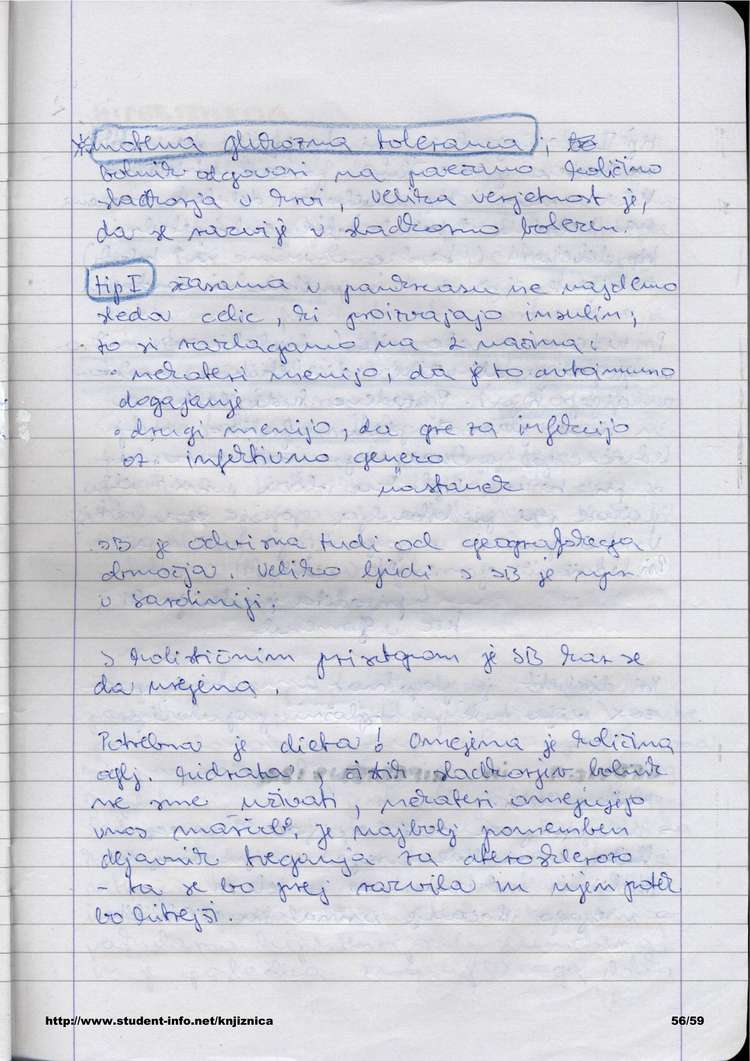 * motena glukozna toleranca;
bolnik odgovori na povečano količino
sladkorja v krvi, velika verjetnost je,
da se razvije v sladkorno bolezen.
tip I čžasoma v pankreasu ne najdemo
sledu celic, ki proizvajajo insulin;
to si razlagamo na 2 načina:
• nekateri menijo, da je to avtoimuno
dogajanje
• drugi menijo, da gre za infekcijo
oz. infektivno genezo
nastanek
SB je odvisna tudi od geografskega
območja. Veliko ljudi s SB je
v Sardiniji.
S holističnim pristopom je SB kar se
da urejena.
Potrebna je dieta! Omejena je količina
oglj. hidratov, čistih sladkorjev bolnik
ne sme uživati, nekateri omejujejo
vnos maščob, je najbolj pomemben
dejavnik tveganja za aterosklerozo
- ta se bo prej razvila in njen potek
bo hitrejši.
http://www.student-info.net/knjiznica
56/59